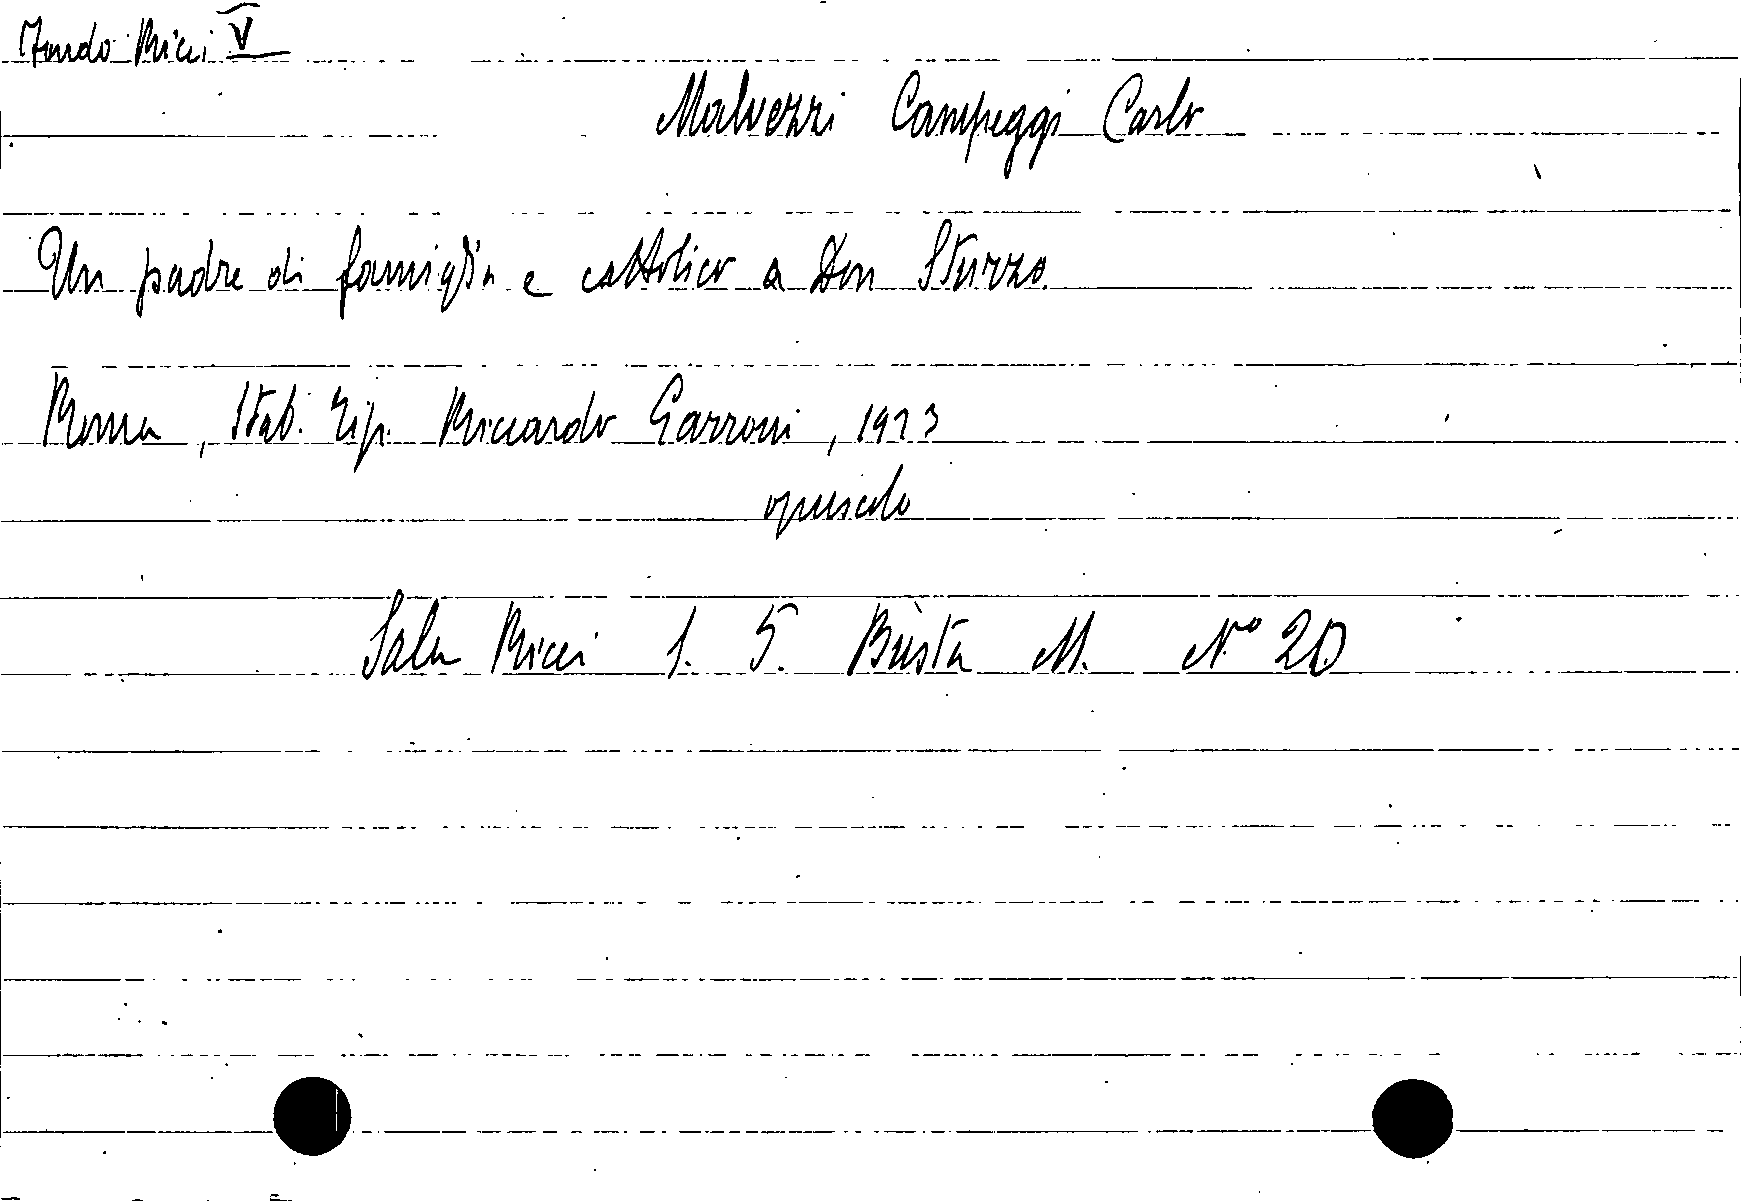 Fondo Ricci V
Malvezzi Campeggi Carlo
Un padre di famiglia e cattolico a Don Sturzo.
Roma, Stab. Tip. Riccardo Garroni, 1923
opuscolo
Sala Ricci S. 5. Busta M. N° 20